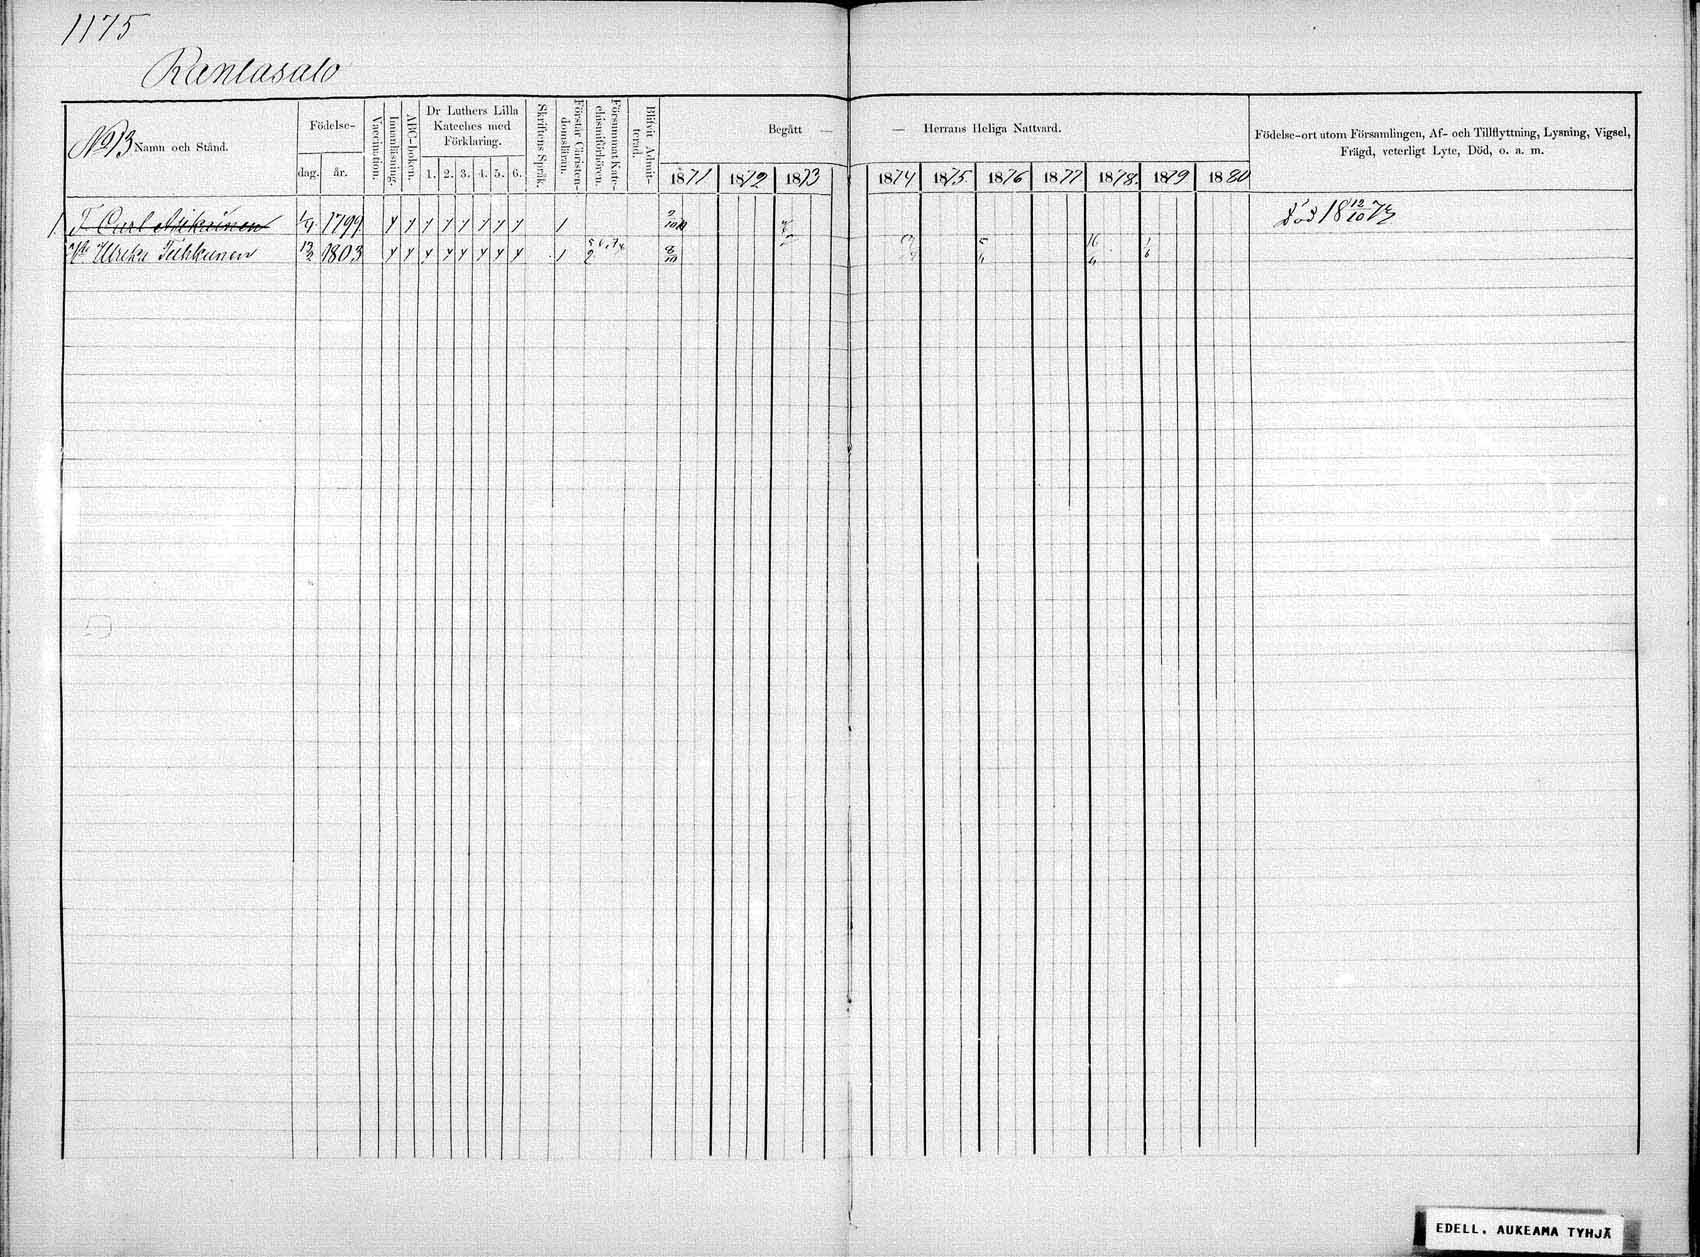 1175
Rantasalo
No 13 Namn och Stånd.
Födelse-
dag. år.
Vaccination.
Innanläsning.
ABC-boken.
Dr Luthers Lilla
Kateches med
Förklaring.
1. 2. 3. 4. 5. 6.
Skriftens Språk.
Förstår Christen-
domsläran.
Försummat Kate-
chismiförhören.
Blifvit Admit-
terad.
Begått — — Herrans Heliga Nattvard.
1871 1872 1873 1874 1875 1876 1877 1878 1879 1880
Födelse-ort utom Församlingen, Af- och Tillflyttning, Lysning, Vigsel,
Frägd, veterligt Lyte, Död, o. a. m.
1. T. Carl 1799 död 18 12/10 73
Ulrika 13/2 1803
EDELL. AUKEAMA TYHJÄ